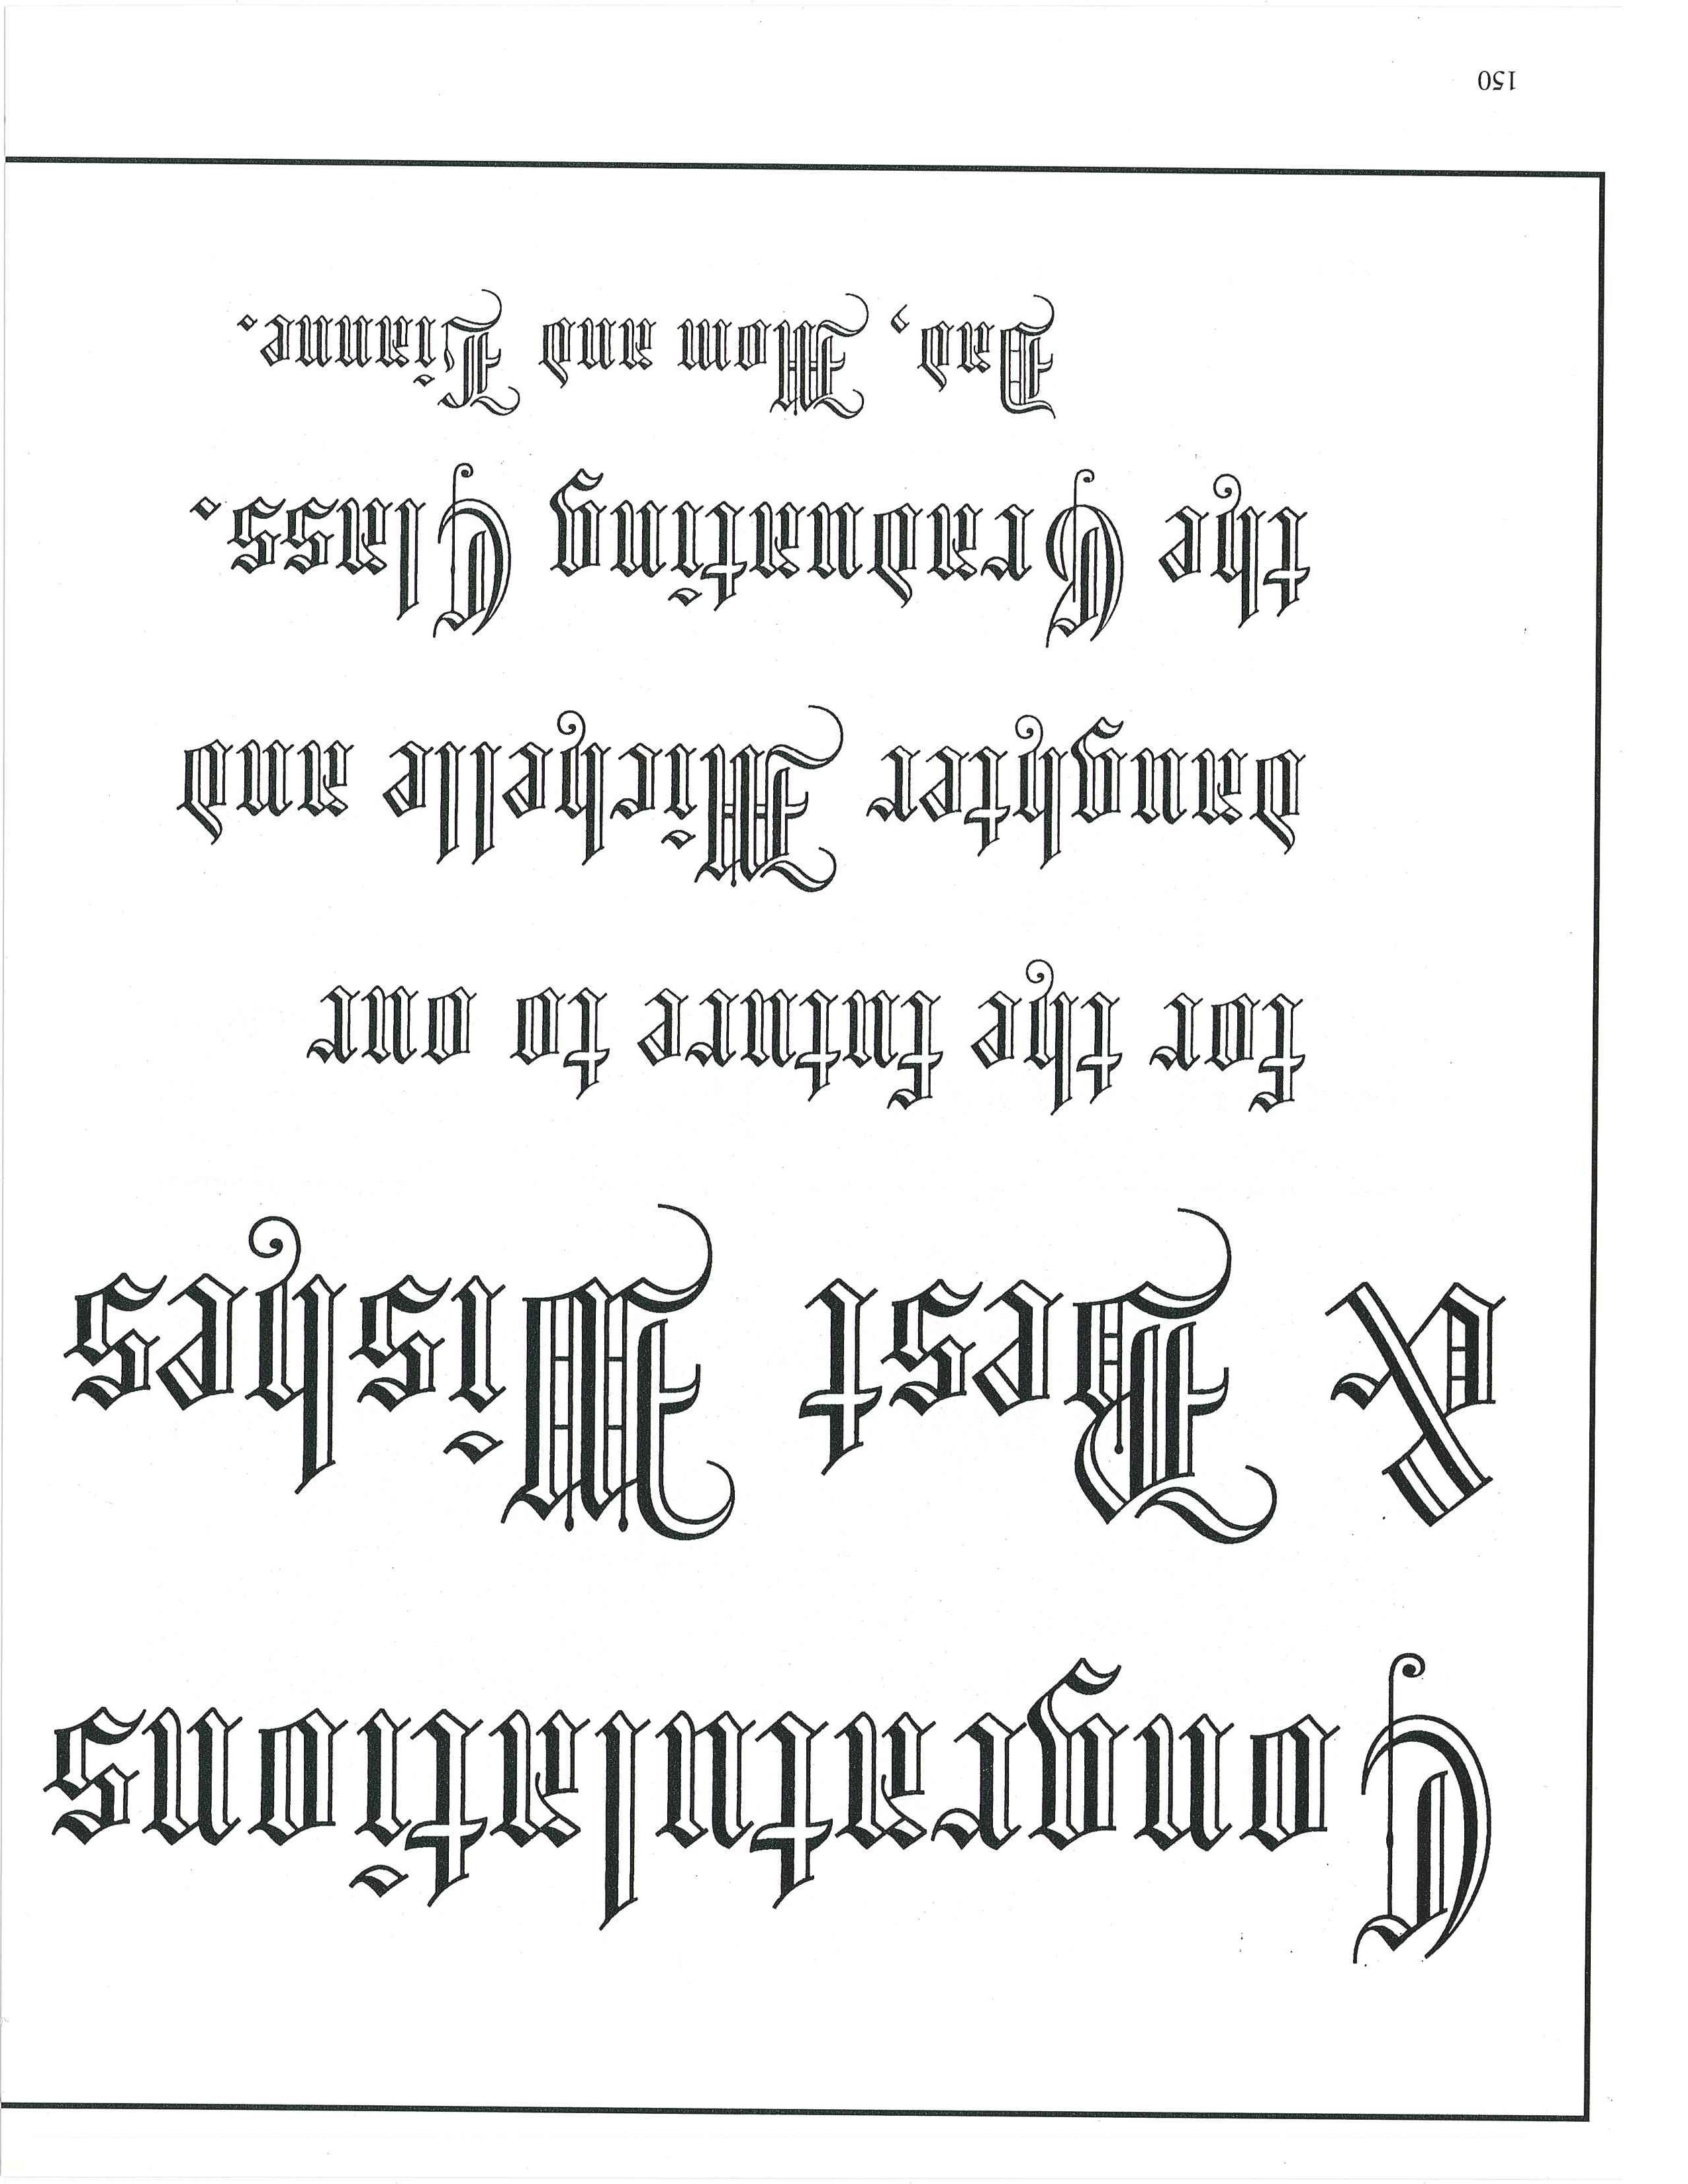 Congratulations
& Best Wishes
for the future to our
daughter Michelle and
the Graduating Class.
Dad, Mom and Lianne.
150